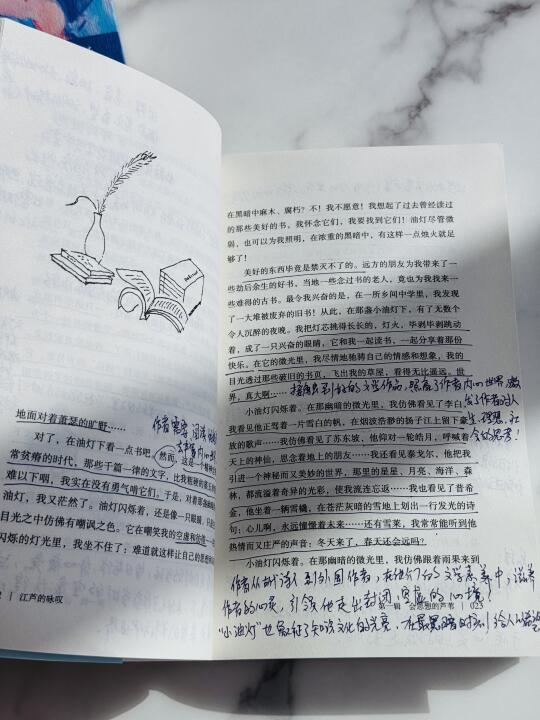 地面对着萧瑟的旷野……
对了，在油灯下看一点书吧。然而，这是一个精神
常贫瘠的时代，那些千篇一律的文字，比我粗糙的
难以下咽，我实在没有勇气啃它们。于是，对着那盏
油灯，我又茫然了。油灯闪烁着，还是像一只眼睛，只是
目光之中仿佛有嘲讽之色。它在嘲笑我的空虚和
闪烁的灯光里，我坐不住了：难道就这样让自己的思想
2 | 江芦的咏叹
在黑暗中麻木、腐朽？不！我不愿意！我想起了过去曾经读过
的那些美好的书。我怀念它们，我要找到它们！油灯尽管微
弱，也可以为我照明，在浓重的黑暗中，有这样一点烛火就足
够了！
美好的东西毕竟是禁灭不了的。远方的朋友为我带来了一
些劫后余生的好书，当地一些念过书的老人，竟也为我找来一
些难得的古书。最令我兴奋的是，在一所乡间中学里，我发现
了一大堆被废弃的旧书！从此，在那盏小油灯下，有了无数个
令人沉醉的夜晚。我把灯芯挑得长长的，灯火，毕剥毕剥跳动
着，成了一只兴奋的眼睛，它和我一起读书，一起分享着那份
快乐。在它的微光里，我尽情地驰骋自己的情感和想象，我的
目光透过那些破旧的书页，飞出我的草屋，看得无比遥远。世
界，真大啊……
接触到好的文学作品，照亮了作者内心世界，激
发了作者对人
生、理想、社
会的思考！
小油灯闪烁着。在那幽暗的微光里，我仿佛看见了李白，
我看见他正驾着一片雪白的帆，在烟波浩渺的扬子江上留下豪
放的歌声……我仿佛看见了苏东坡，他仰对一轮皓月，呼喊着
天上的神仙，思念着地上的朋友……我还看见泰戈尔，他把我
引进一个神秘而又美妙的世界，那里的星星、月亮、海洋、森
林，都流溢着奇异的光彩，使我流连忘返……我也看见了普希
金，他坐着一辆雪橇，在苍茫灰暗的雪地上划出一行发光的诗
句：心儿啊，永远憧憬着未来……还有雪莱，我常常能听到他
热情而又庄严的声音：冬天来了，春天还会远吗？
小油灯闪烁着。在那幽暗的微光里，我仿佛跟着雨果来到
作者从古代诗人到外国作者，在他们的文学
作者的心灵，引领他走出封闭、空虚的心境！
第一辑 会思想的芦苇 | 023
“小油灯”也象征了知识文化的光亮，在最黑暗的时刻给人以希望